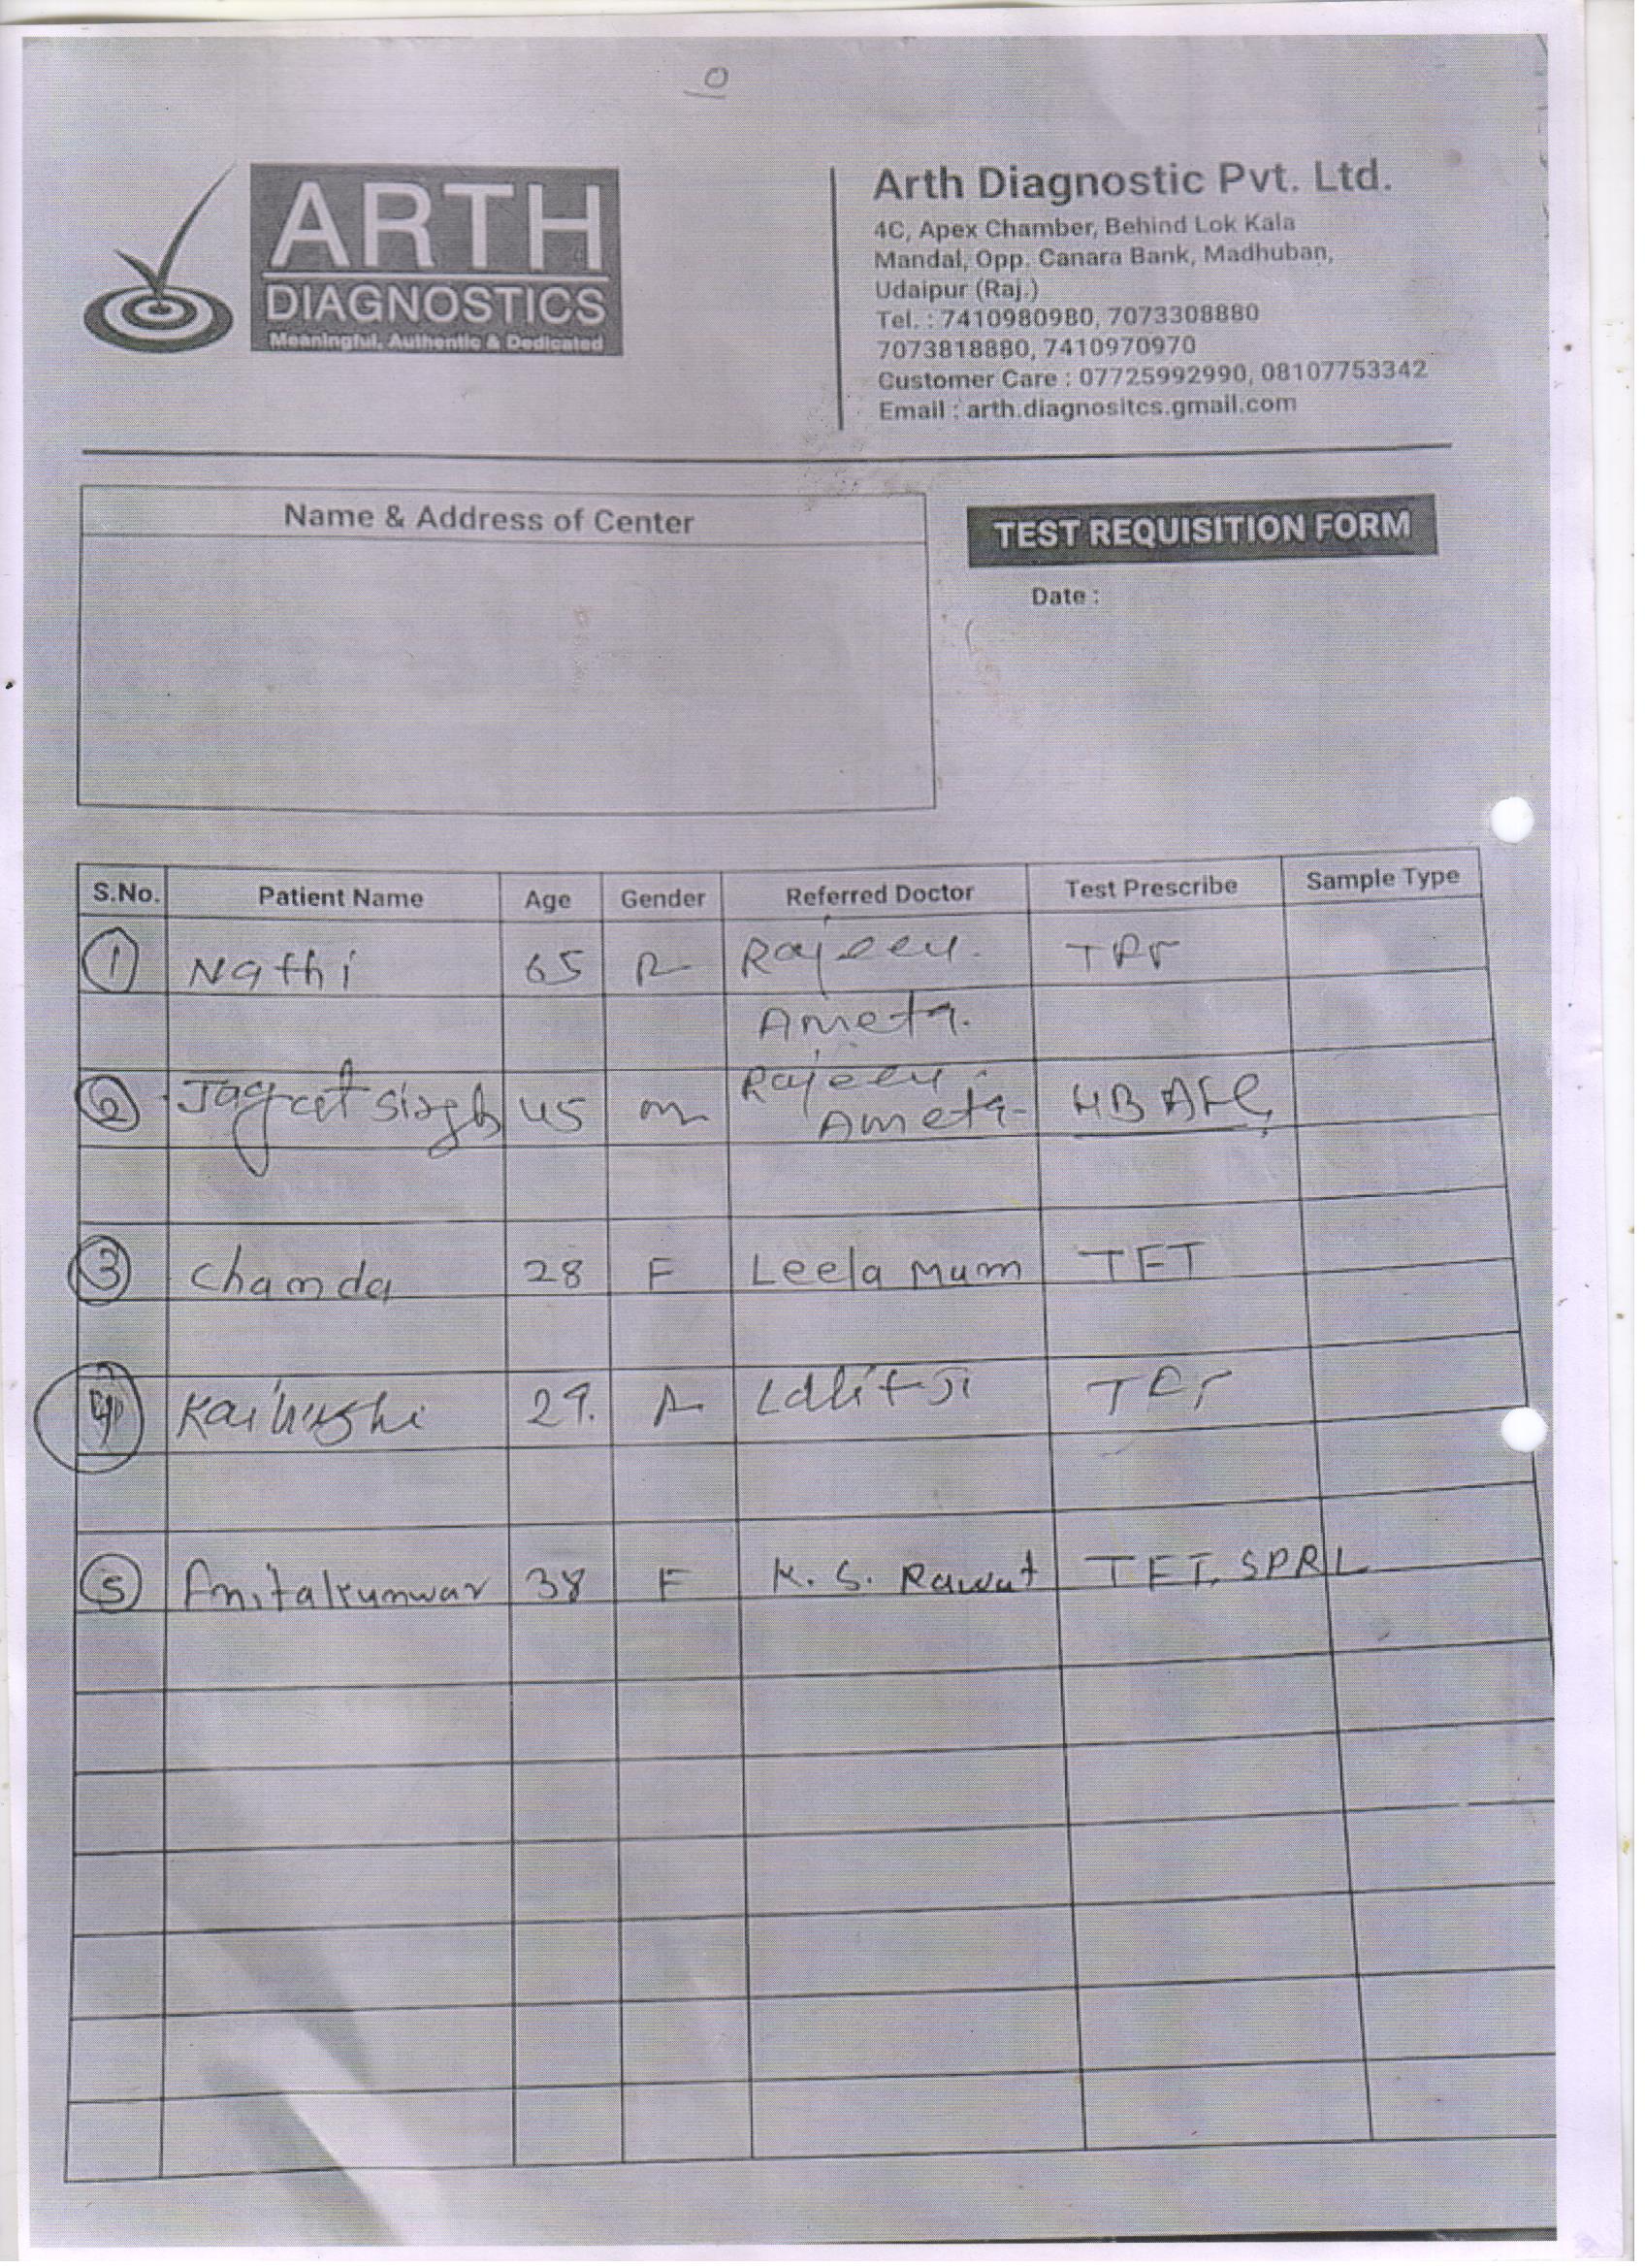 10
ARTH
DIAGNOSTICS
Meaningful, Authentic & Dedicated
Arth Diagnostic Pvt. Ltd.
4C, Apex Chamber, Behind Lok Kala
Mandal, Opp. Canara Bank, Madhuban,
Udaipur (Raj.)
Tel. : 7410980980, 7073308880
7073818880, 7410970970
Customer Care : 07725992990, 08107753342
Email : arth.diagnositcs.gmail.com
Name & Address of Center
TEST REQUISITION FORM
Date :
S.No. Patient Name Age Gender Referred Doctor Test Prescribe Sample Type
1 Nathi 65 F Rajeev. TFT
Ameta.
2 Jagat Singh 45 m Rajeev Ameta
3 Chamda 28 F Leela Mum TFT
4 29. F Lalit Ji TFT
5 Anitakunwar 38 F K. S. Rawat TFT, SPRL